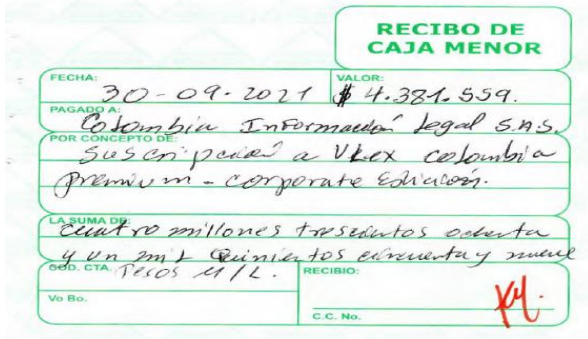 RECIBO DE
CAJA MENOR
FECHA: 30-09-2021 VALOR: $ 4.381.559.
PAGADO A: Colombia Información Legal S.A.S.
POR CONCEPTO DE: Suscripción a VLex colombia
premium - corporate
LA SUMA DE: cuatro millones trescientos ochenta
y un mil Quinientos cincuenta y nueve
COD. CTA. Pesos M/L. RECIBIO:
Vo Bo.
C.C. No.